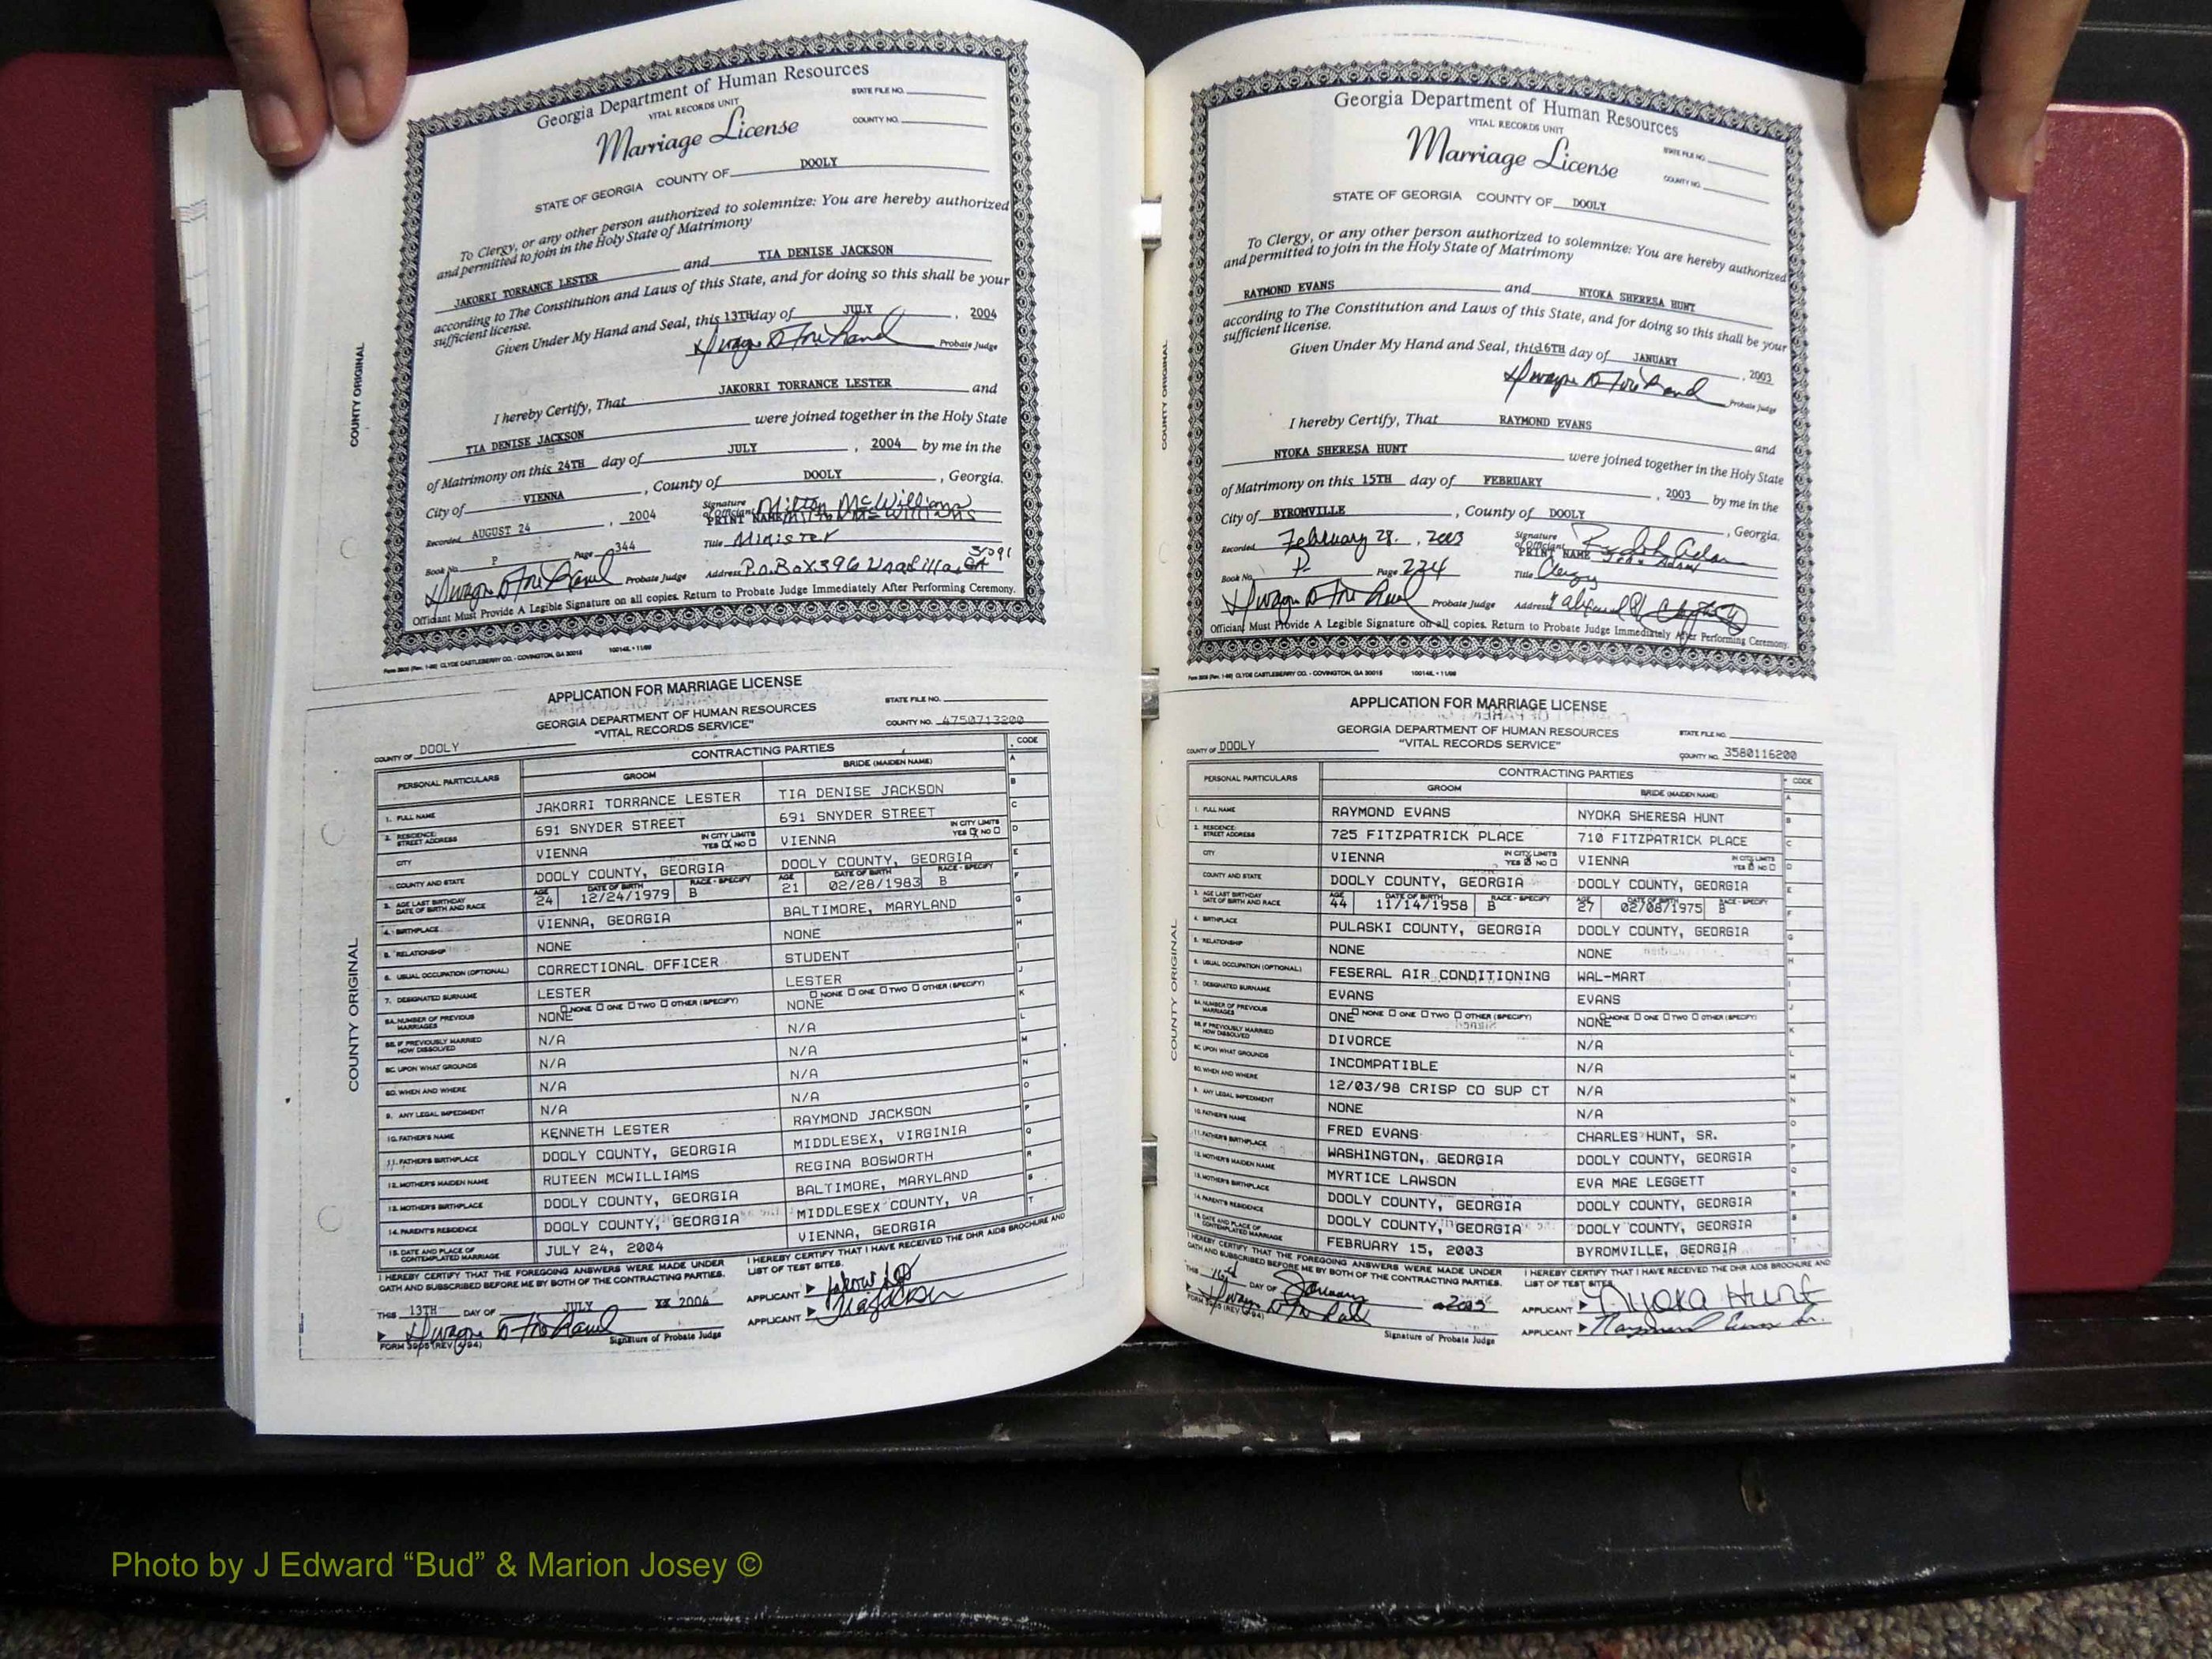 Georgia Department of Human Resources
VITAL RECORDS UNIT
STATE FILE NO.
Marriage License
COUNTY NO.
STATE OF GEORGIA COUNTY OF DOOLY
To Clergy, or any other person authorized to solemnize: You are hereby authorized
and permitted to join in the Holy State of Matrimony
JAKORRI TORRANCE LESTER and TIA DENISE JACKSON
according to The Constitution and Laws of this State, and for doing so this shall be your
sufficient license.
Given Under My Hand and Seal, this 13TH day of JULY , 2004
Probate Judge
I hereby Certify, That JAKORRI TORRANCE LESTER and
TIA DENISE JACKSON were joined together in the Holy State
of Matrimony on this 24TH day of JULY , 2004 by me in the
City of VIENNA , County of DOOLY , Georgia.
Recorded AUGUST 24 , 2004 Signature of Officiant Milton McWilliams
PRINT NAME Milton McWilliams
Book No. P Page 344 Title Minister
Probate Judge Address P.O. Box 396 Unadilla, GA 31091
Officiant Must Provide A Legible Signature on all copies. Return to Probate Judge Immediately After Performing Ceremony.
Form 3908 (Rev. 1-96) CLYDE CASTLEBERRY CO. - COVINGTON, GA 30015
COUNTY ORIGINAL
APPLICATION FOR MARRIAGE LICENSE
GEORGIA DEPARTMENT OF HUMAN RESOURCES
"VITAL RECORDS SERVICE"
STATE FILE NO.
COUNTY NO. 4750713200
COUNTY OF DOOLY
PERSONAL PARTICULARS CONTRACTING PARTIES CODE
GROOM BRIDE (MAIDEN NAME)
1. FULL NAME JAKORRI TORRANCE LESTER TIA DENISE JACKSON
2. RESIDENCE: STREET ADDRESS 691 SNYDER STREET 691 SNYDER STREET
CITY VIENNA IN CITY LIMITS YES NO VIENNA IN CITY LIMITS YES NO
COUNTY AND STATE DOOLY COUNTY, GEORGIA DOOLY COUNTY, GEORGIA
3. AGE LAST BIRTHDAY DATE OF BIRTH AND RACE AGE 24 DATE OF BIRTH 12/24/1979 RACE - SPECIFY B AGE 21 DATE OF BIRTH 02/28/1983 RACE - SPECIFY B
4. BIRTHPLACE VIENNA, GEORGIA BALTIMORE, MARYLAND
5. RELATIONSHIP NONE NONE
6. USUAL OCCUPATION (OPTIONAL) CORRECTIONAL OFFICER STUDENT
7. DESIGNATED SURNAME LESTER LESTER
8A. NUMBER OF PREVIOUS MARRIAGES NONE NONE ONE TWO OTHER (SPECIFY) NONE NONE ONE TWO OTHER (SPECIFY)
8B. IF PREVIOUSLY MARRIED HOW DISSOLVED N/A N/A
8C. UPON WHAT GROUNDS N/A N/A
8D. WHEN AND WHERE N/A N/A
9. ANY LEGAL IMPEDIMENT N/A N/A
10. FATHER'S NAME KENNETH LESTER RAYMOND JACKSON
11. FATHER'S BIRTHPLACE DOOLY COUNTY, GEORGIA MIDDLESEX, VIRGINIA
12. MOTHER'S MAIDEN NAME RUTEEN MCWILLIAMS REGINA BOSWORTH
13. MOTHER'S BIRTHPLACE DOOLY COUNTY, GEORGIA BALTIMORE, MARYLAND
14. PARENT'S RESIDENCE DOOLY COUNTY, GEORGIA MIDDLESEX COUNTY, VA
15. DATE AND PLACE OF CONTEMPLATED MARRIAGE JULY 24, 2004 VIENNA, GEORGIA
I HEREBY CERTIFY THAT THE FOREGOING ANSWERS WERE MADE UNDER
OATH AND SUBSCRIBED BEFORE ME BY BOTH OF THE CONTRACTING PARTIES.
I HEREBY CERTIFY THAT I HAVE RECEIVED THE DHR AIDS BROCHURE AND
LIST OF TEST SITES.
THIS 13TH DAY OF JULY 2004
APPLICANT
APPLICANT
Signature of Probate Judge
COUNTY ORIGINAL
Georgia Department of Human Resources
VITAL RECORDS UNIT
STATE FILE NO.
Marriage License
COUNTY NO.
STATE OF GEORGIA COUNTY OF DOOLY
To Clergy, or any other person authorized to solemnize: You are hereby authorized
and permitted to join in the Holy State of Matrimony
RAYMOND EVANS and NYOKA SHERESA HUNT
according to The Constitution and Laws of this State, and for doing so this shall be your
sufficient license.
Given Under My Hand and Seal, this 16TH day of JANUARY , 2003
Probate Judge
I hereby Certify, That RAYMOND EVANS and
NYOKA SHERESA HUNT were joined together in the Holy State
of Matrimony on this 15TH day of FEBRUARY , 2003 by me in the
City of BYROMVILLE , County of DOOLY , Georgia.
Recorded February 28, , 2003 Signature of Officiant
PRINT NAME
Book No. P Page 224 Title Clergy
Probate Judge Address
Officiant Must Provide A Legible Signature on all copies. Return to Probate Judge Immediately After Performing Ceremony.
CLYDE CASTLEBERRY CO. - COVINGTON, GA 30015
COUNTY ORIGINAL
APPLICATION FOR MARRIAGE LICENSE
GEORGIA DEPARTMENT OF HUMAN RESOURCES
"VITAL RECORDS SERVICE"
STATE FILE NO.
COUNTY NO. 3580116200
COUNTY OF DOOLY
PERSONAL PARTICULARS CONTRACTING PARTIES CODE
GROOM BRIDE (MAIDEN NAME)
1. FULL NAME RAYMOND EVANS NYOKA SHERESA HUNT
2. RESIDENCE: STREET ADDRESS 725 FITZPATRICK PLACE 710 FITZPATRICK PLACE
CITY VIENNA IN CITY LIMITS YES NO VIENNA IN CITY LIMITS YES NO
COUNTY AND STATE DOOLY COUNTY, GEORGIA DOOLY COUNTY, GEORGIA
3. AGE LAST BIRTHDAY DATE OF BIRTH AND RACE AGE 44 DATE OF BIRTH 11/14/1958 RACE - SPECIFY B AGE 27 DATE OF BIRTH 02/08/1975 RACE - SPECIFY B
4. BIRTHPLACE PULASKI COUNTY, GEORGIA DOOLY COUNTY, GEORGIA
5. RELATIONSHIP NONE NONE
6. USUAL OCCUPATION (OPTIONAL) FESERAL AIR CONDITIONING WAL-MART
7. DESIGNATED SURNAME EVANS EVANS
8A. NUMBER OF PREVIOUS MARRIAGES ONE NONE ONE TWO OTHER (SPECIFY) NONE NONE ONE TWO OTHER (SPECIFY)
8B. IF PREVIOUSLY MARRIED HOW DISSOLVED DIVORCE N/A
8C. UPON WHAT GROUNDS INCOMPATIBLE N/A
8D. WHEN AND WHERE 12/03/98 CRISP CO SUP CT N/A
9. ANY LEGAL IMPEDIMENT NONE N/A
10. FATHER'S NAME FRED EVANS CHARLES HUNT, SR.
11. FATHER'S BIRTHPLACE WASHINGTON, GEORGIA DOOLY COUNTY, GEORGIA
12. MOTHER'S MAIDEN NAME MYRTICE LAWSON EVA MAE LEGGETT
13. MOTHER'S BIRTHPLACE DOOLY COUNTY, GEORGIA DOOLY COUNTY, GEORGIA
14. PARENT'S RESIDENCE DOOLY COUNTY, GEORGIA DOOLY COUNTY, GEORGIA
15. DATE AND PLACE OF CONTEMPLATED MARRIAGE FEBRUARY 15, 2003 BYROMVILLE, GEORGIA
I HEREBY CERTIFY THAT THE FOREGOING ANSWERS WERE MADE UNDER
OATH AND SUBSCRIBED BEFORE ME BY BOTH OF THE CONTRACTING PARTIES.
I HEREBY CERTIFY THAT I HAVE RECEIVED THE DHR AIDS BROCHURE AND
LIST OF TEST SITES.
THIS DAY OF January 2003
APPLICANT Nyoka Hunt
APPLICANT Raymond Evans Sr.
Signature of Probate Judge
COUNTY ORIGINAL
Photo by J Edward “Bud” & Marion Josey ©